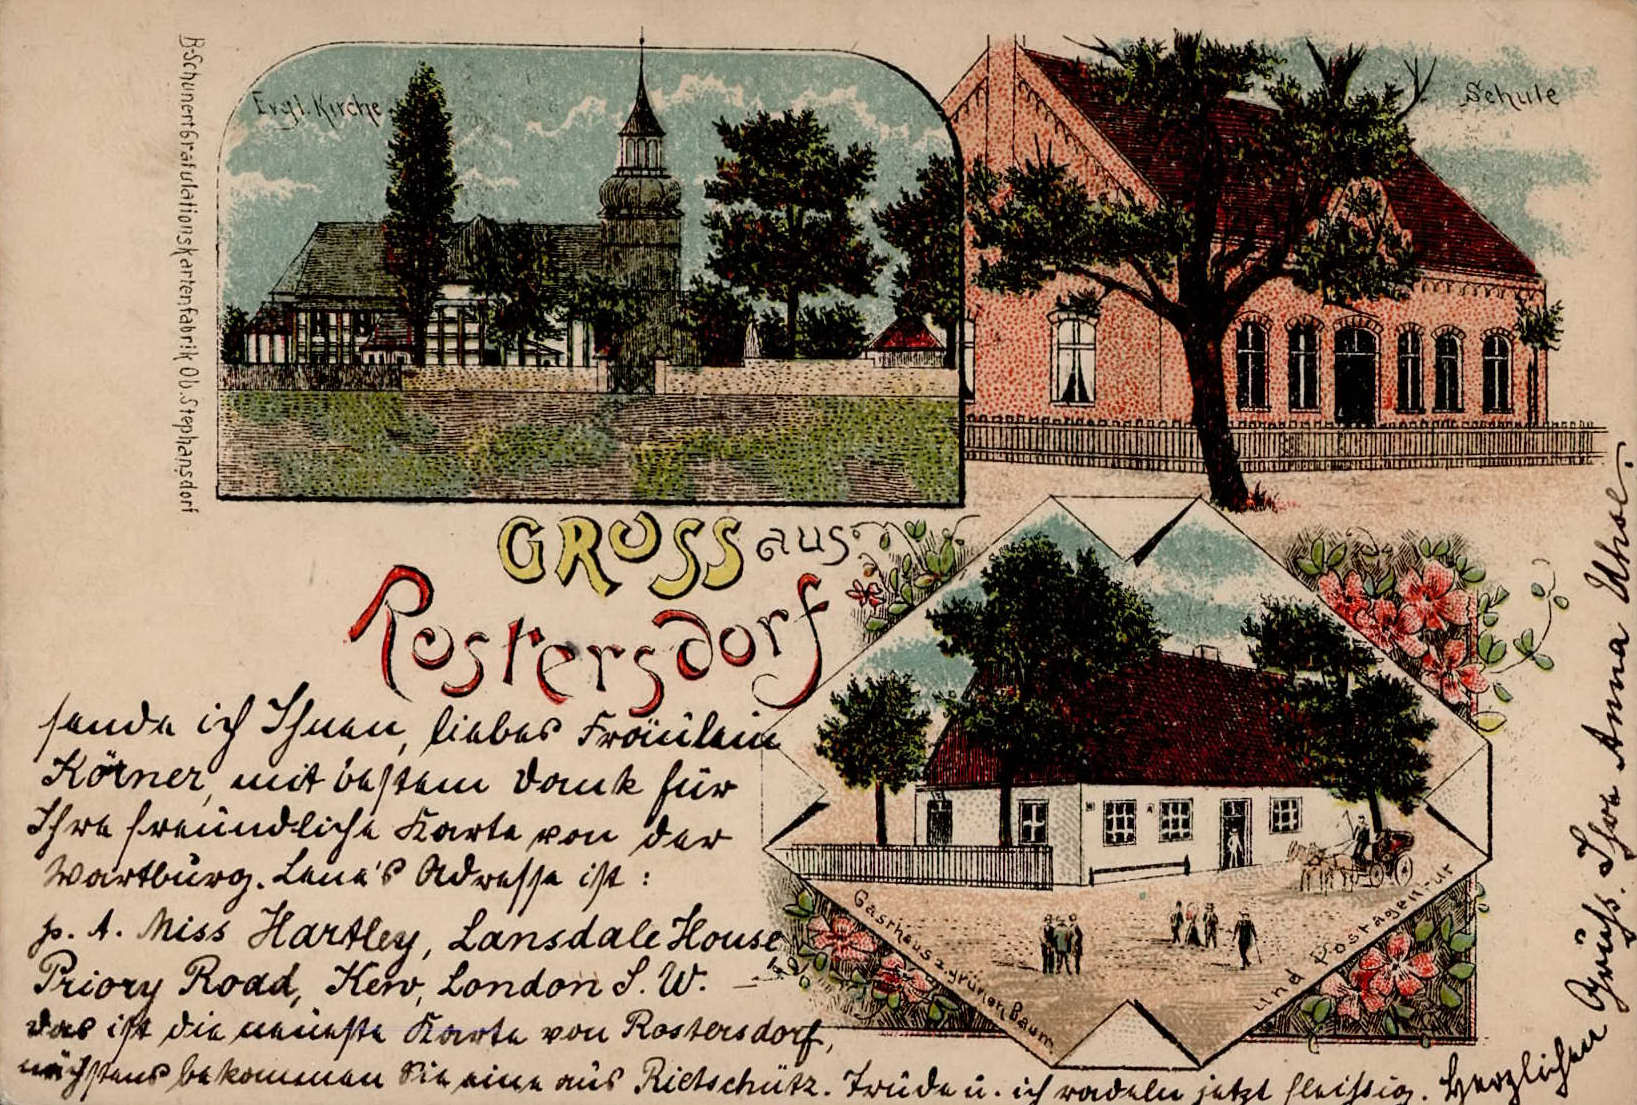 Evgl. Kirche
Schule
B. Schunert Gratulationskartenfabrik Ob. Stephansdorf
GRUSS aus
Rostersdorf
sende ich Ihnen, liebes Fräulein
Körner, mit bestem Dank für
Ihre freundliche Karte von der
Wartburg. Lene's Adresse ist:
p. A. Miss Hartley, Lansdale House
Priory Road, Kew, London S. W.
Das ist die neueste Karte von Rostersdorf,
nächstens bekommen Sie eine aus Rietschütz. Trude u. ich radeln jetzt fleissig. Herzlichen Gruss. Ihre Anna
Gasthaus z. grünen Baum
und Postagentur